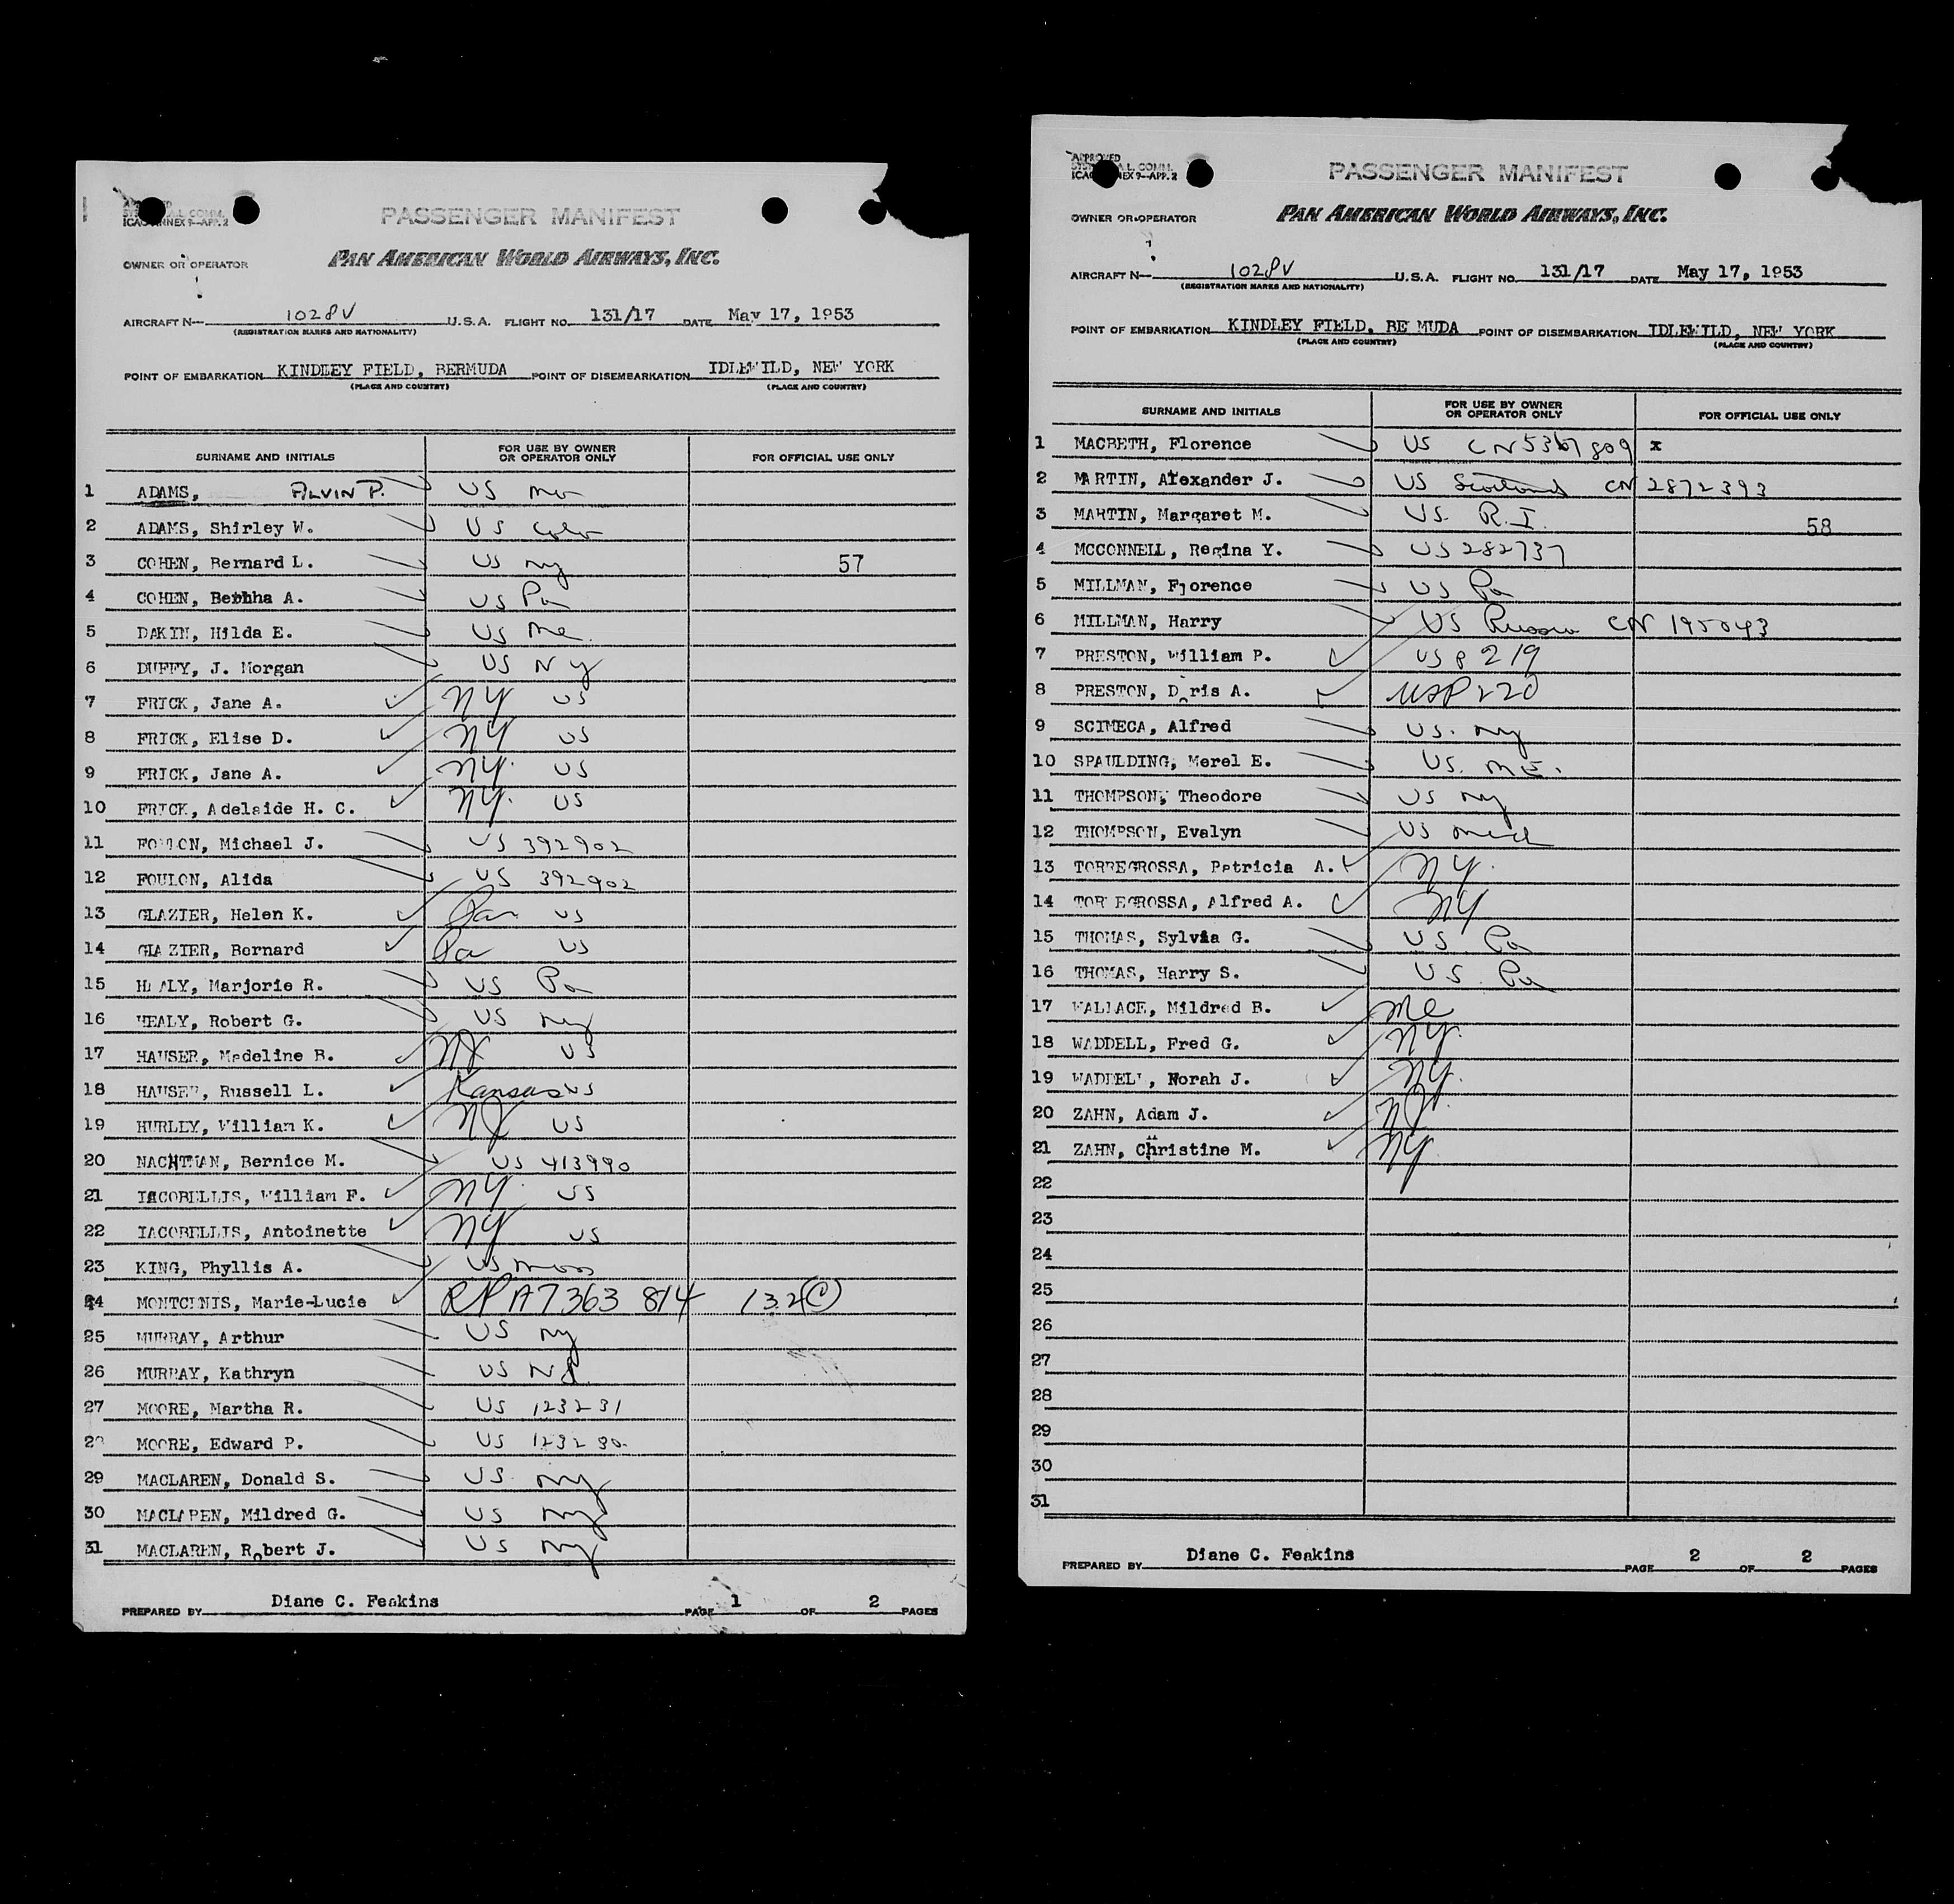 PASSENGER MANIFEST
PAN AMERICAN WORLD AIRWAYS, INC.
OWNER OR OPERATOR
AIRCRAFT N— 1028V U.S.A. FLIGHT NO. 131/17 DATE May 17, 1953
(REGISTRATION MARKS AND NATIONALITY)
POINT OF EMBARKATION KINDLEY FIELD, BERMUDA POINT OF DISEMBARKATION IDLEWILD, NEW YORK
(PLACE AND COUNTRY) (PLACE AND COUNTRY)
SURNAME AND INITIALS FOR USE BY OWNER OR OPERATOR ONLY FOR OFFICIAL USE ONLY
1 ADAMS, ALVIN P. US
2 ADAMS, Shirley W. US Colo
3 COHEN, Bernard L. US NY 57
4 COHEN, Bertha A. US Pa
5 DAKIN, Hilda E. US Me.
6 DUFFY, J. Morgan US NY
7 FRICK, Jane A. NY US
8 FRICK, Elise D. NY US
9 FRICK, Jane A. NY. US
10 FRICK, Adelaide H. C. NY. US
11 FOULON, Michael J. US 392902
12 FOULON, Alida US 392902
13 GLAZIER, Helen K. Pa US
14 GLAZIER, Bernard Pa US
15 HEALY, Marjorie R. US Pa
16 HEALY, Robert G. US NY
17 HAUSER, Madeline B. NJ US
18 HAUSER, Russell L. Kansas US
19 HURLEY, William K. NJ US
20 NACHTMAN, Bernice M. US 413990
21 IACOBELLIS, William F. NY. US
22 IACOBELLIS, Antoinette NY US
23 KING, Phyllis A. US Mass
24 MONTCENIS, Marie-Lucie RP A7363 814 132(C)
25 MURRAY, Arthur US NY
26 MURRAY, Kathryn US NJ
27 MOORE, Martha R. US 123231
28 MOORE, Edward P. US 123230
29 MACLAREN, Donald S. US NY
30 MACLAREN, Mildred G. US NY
31 MACLAREN, Robert J. US NY
PREPARED BY Diane C. Feakins PAGE 1 OF 2 PAGES
PASSENGER MANIFEST
OWNER OR OPERATOR PAN AMERICAN WORLD AIRWAYS, INC.
AIRCRAFT N— 1028V U.S.A. FLIGHT NO. 131/17 DATE May 17, 1953
(REGISTRATION MARKS AND NATIONALITY)
POINT OF EMBARKATION KINDLEY FIELD, BE MUDA POINT OF DISEMBARKATION IDLEWILD, NEW YORK
(PLACE AND COUNTRY) (PLACE AND COUNTRY)
SURNAME AND INITIALS FOR USE BY OWNER OR OPERATOR ONLY FOR OFFICIAL USE ONLY
1 MACBETH, Florence US CN5367809 x
2 MARTIN, Alexander J. US Scotland CN 2872393
3 MARTIN, Margaret M. US. R.I. 58
4 MCCONNELL, Regina Y. US 282737
5 MILLMAN, Florence US Pa
6 MILLMAN, Harry US Russia CN 195043
7 PRESTON, William P. US P 219
8 PRESTON, Doris A. USP 220
9 SCIMECA, Alfred US. NY
10 SPAULDING, Merel E. US. ME.
11 THOMPSON, Theodore US NY
12 THOMPSON, Evalyn US Mich
13 TORREGROSSA, Patricia A. NY.
14 TOR EGROSSA, Alfred A. NY
15 THOMAS, Sylvia G. US Pa
16 THOMAS, Harry S. US. Pa
17 WALLACE, Mildred B. Me
18 WADDELL, Fred G. NY.
19 WADDELL, Norah J. NY.
20 ZAHN, Adam J. NY.
21 ZAHN, Christine M. NY.
22
23
24
25
26
27
28
29
30
31
PREPARED BY Diane C. Feakins PAGE 2 OF 2 PAGES